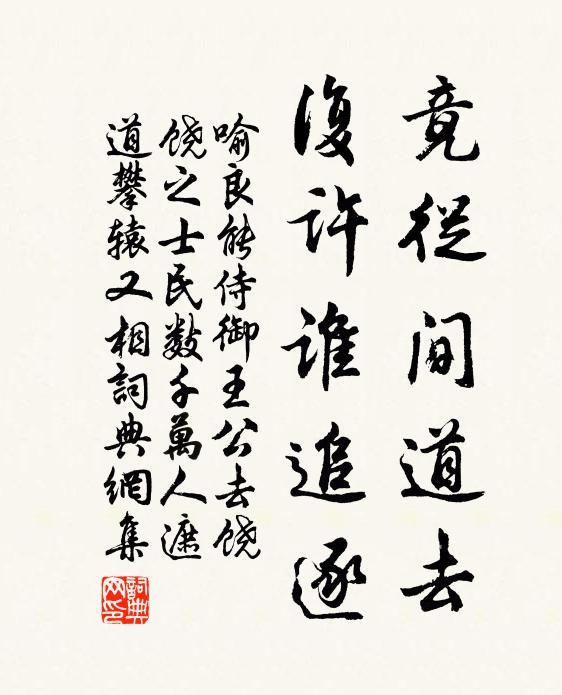 竟從间道去
復許誰追逐
喻良能侍御王公去饶
饶之士民数千萬人遮
道攀辕又相詞典網集
詞典網印